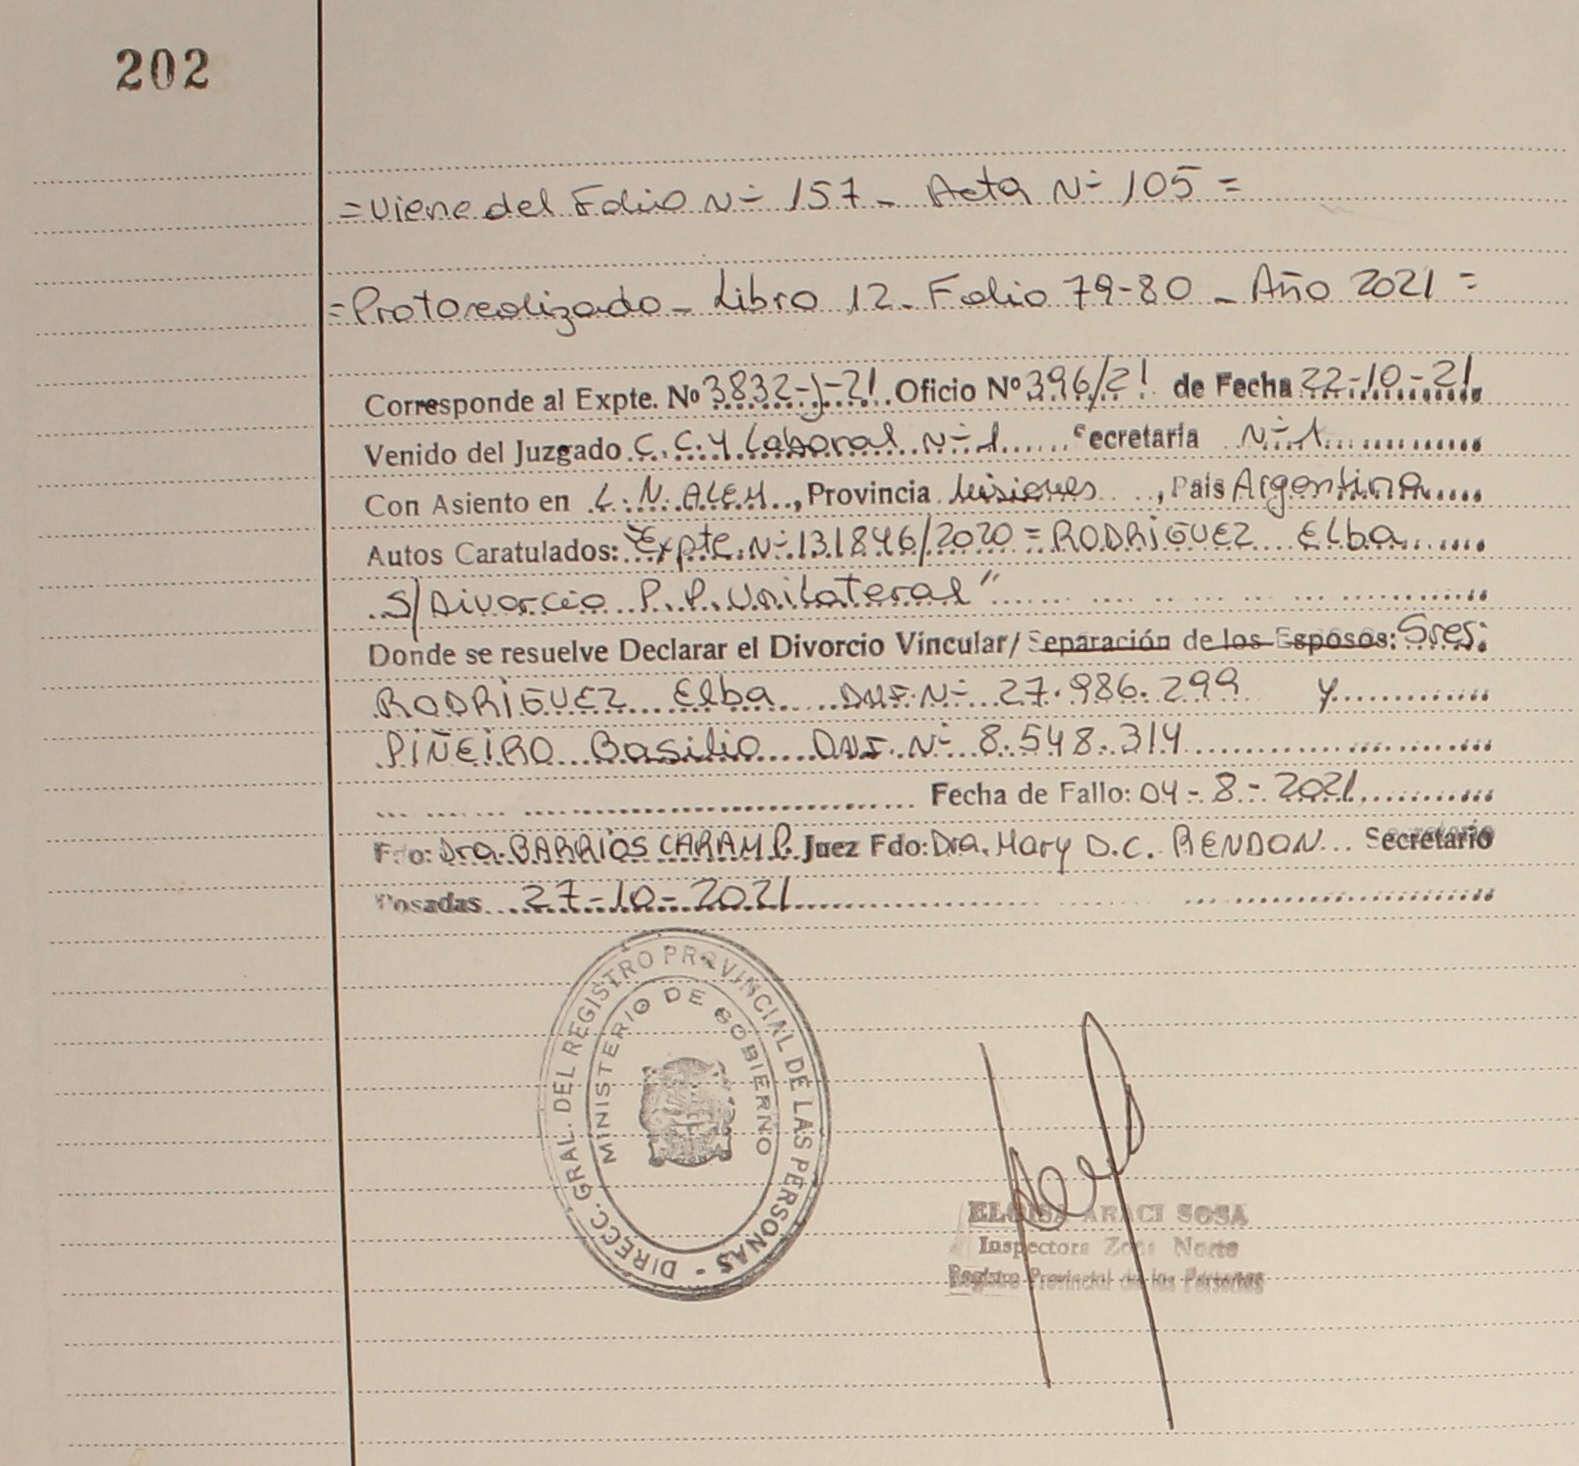 202
=Viene del Folio Nº 157 - Acta Nº 105 =
=Protocolizado - Libro 12 - Folio 79-80 - Año 2021 =
Corresponde al Expte. Nº 3832-J-21 Oficio Nº 396/21 de Fecha 22-10-21
Venido del Juzgado C.C.y Laboral Nº 1 Secretaria Nº 1
Con Asiento en L.N.ALEM, Provincia Misiones, País Argentina
Autos Caratulados: "Expte. Nº 131846/2020 = RODRIGUEZ Elba
S/Divorcio P.P. Unilateral"
Donde se resuelve Declarar el Divorcio Vincular/ Separación de los Esposos: Sres:
RODRIGUEZ Elba DNI. Nº 27.986.299 y
PIÑEIRO Basilio DNI. Nº 8.548.314
Fecha de Fallo: 04-8-2021
Fdo: Dra. BARRIOS CARAM P. Juez Fdo: Dra. Mary D.C. RENDON... Secretario
Posadas 27-10-2021
DIRECC. GRAL. DEL REGISTRO PROVINCIAL DE LAS PERSONAS -
MINISTERIO DE GOBIERNO
ELOISA ARACI SOSA
Inspectora Zona Norte
Registro Provincial de las Personas